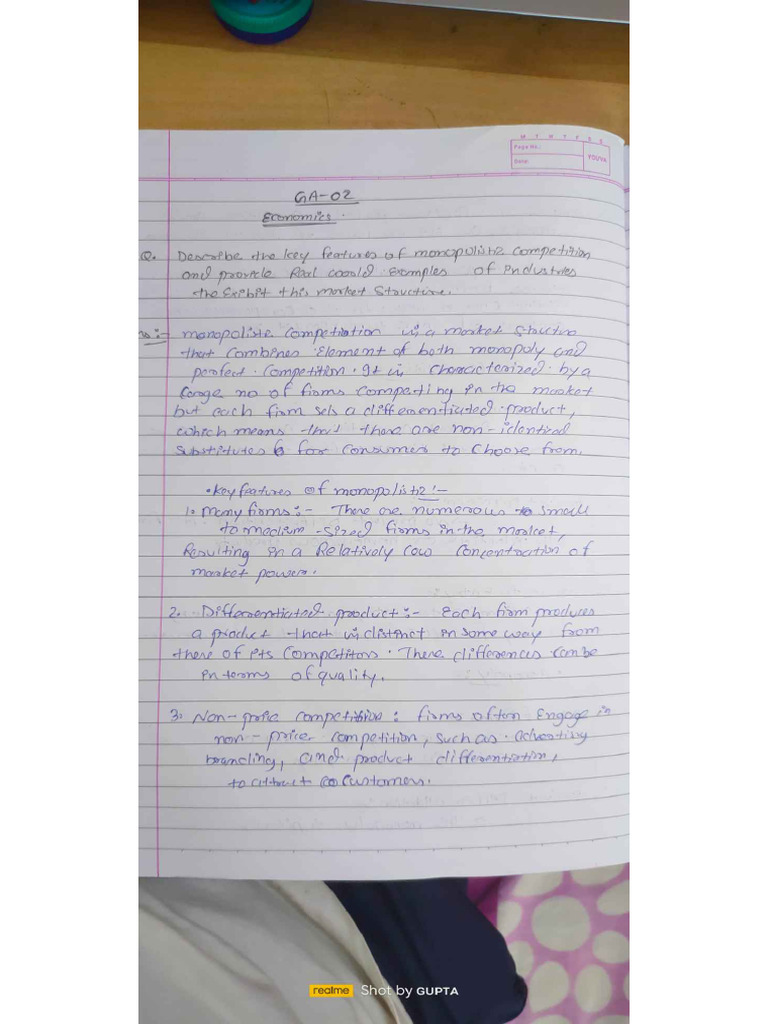 M T W T F S S
Page No.:
Date:
YOUVA
GA-02
Economics.
Q. Describe the key features of monopolistic competition
and provide Real world Examples of Industries
the Exhibit this market Structure.
Ans:- monopolistic competition is a market structure
that combines Element of both monopoly and
perfect competition. It is characterized by a
large no of firms competing in the market
but each firm sels a differentiated product,
which means that there are non-identical
substitutes for consumers to choose from.
• Key features of monopolistic:-
1. Many firms:- There are numerous small
to medium-sized firms in the market,
Resulting in a Relatively low concentration of
market power.
2. Differentiated product:- Each firm produces
a product that is distinct in some way from
there of its competitors. There differences can be
in terms of quality.
3. Non-price competition: firms often Engage in
non-price competition, such as advertising
branding, and product differentiation,
to attract customers.
realme Shot by GUPTA